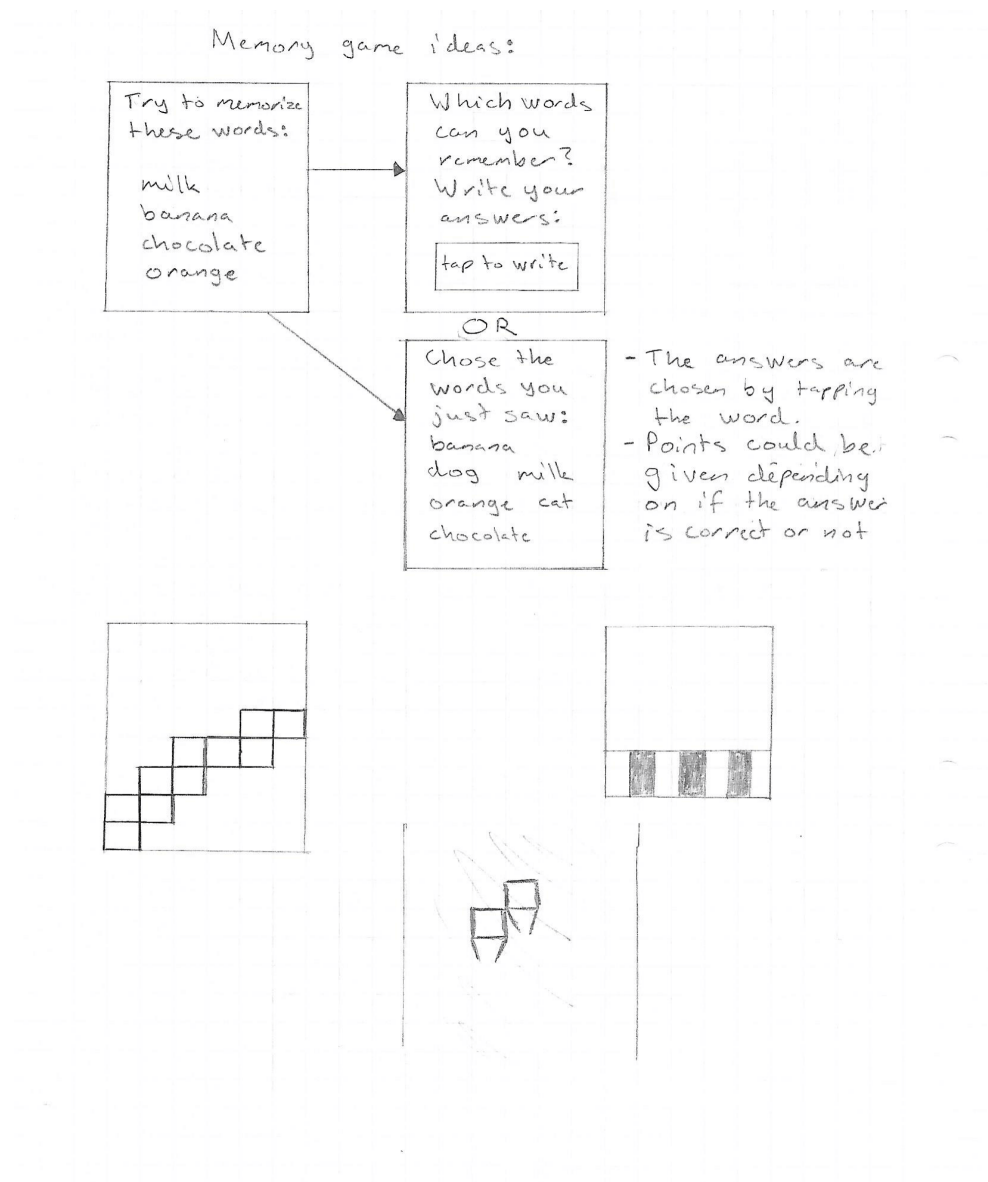 Memory game ideas:
Try to memorize
these words:
milk
banana
chocolate
orange
Which words
can you
remember?
Write your
answers:
tap to write
OR
Chose the
words you
just saw:
banana
dog milk
orange cat
chocolate
- The answers are
chosen by tapping
the word.
- Points could be
given depending
on if the answer
is correct or not